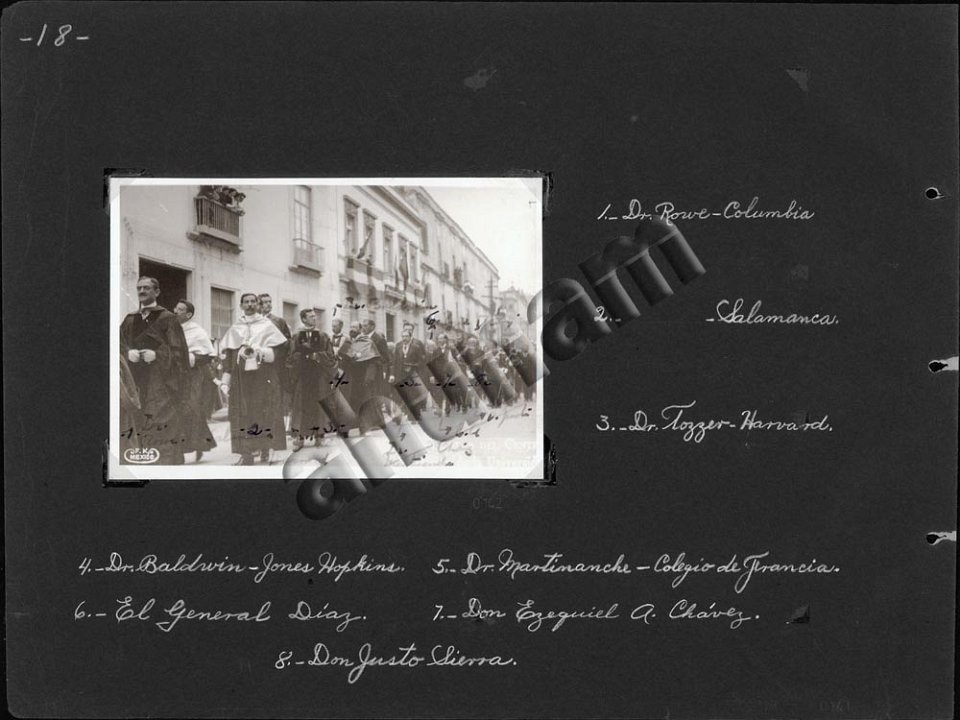 -18-
1.- Dr. Rowe-Columbia
2.- -Salamanca.
3.- Dr. Tozzer-Harvard.
4.- Dr. Baldwin-Jones Hopkins. 5.- Dr. Martinanche-Colegio de Francia.
6.- El General Díaz. 7.- Don Ezequiel A. Chávez.
8.- Don Justo Sierra.
MEXICO